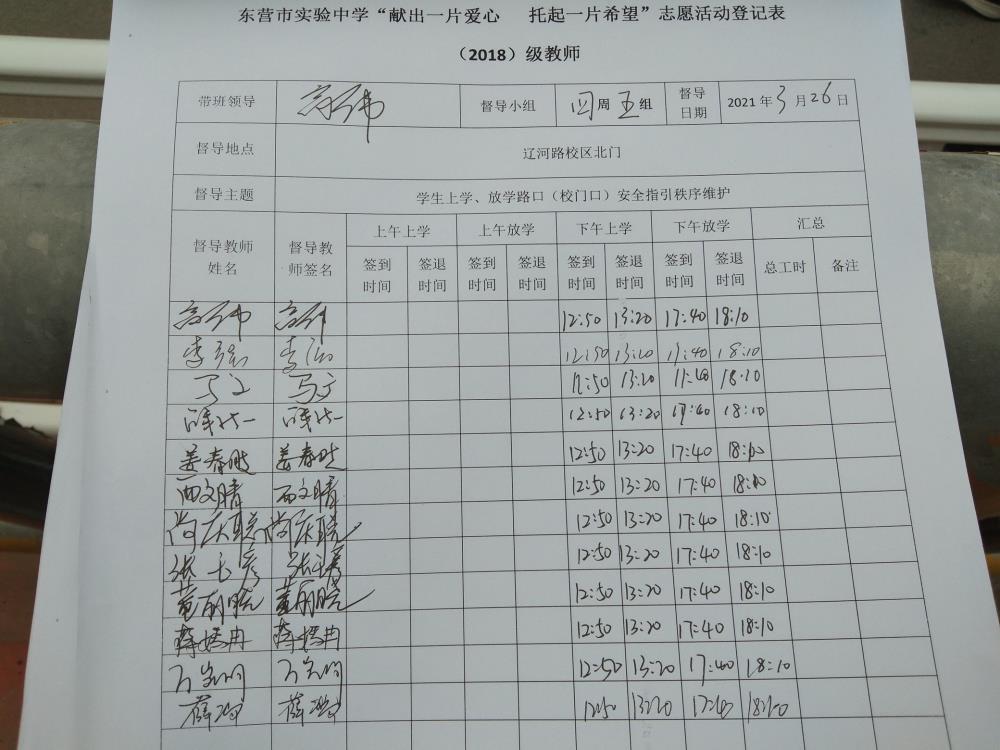 东营市实验中学“献出一片爱心 托起一片希望”志愿活动登记表
（2018）级教师
带班领导 高伟 督导小组 四周五组 督导日期 2021年3月26日
督导地点 辽河路校区北门
督导主题 学生上学、放学路口（校门口）安全指引秩序维护
督导教师姓名 督导教师签名 上午上学 上午放学 下午上学 下午放学 汇总
签到时间 签退时间 签到时间 签退时间 签到时间 签退时间 签到时间 签退时间 总工时 备注
12:50 13:20 17:40 18:10
李 李 12:50 13:20 17:40 18:10
马文 马文 12:50 13:20 17:40 18:10
12:50 13:20 17:40 18:10
姜春 姜春 12:50 13:20 17:40 18:10
西文晴 西文晴 12:50 13:20 17:40 18:10
尚庆联 尚庆联 12:50 13:20 17:40 18:10
张 彦 张 12:50 13:20 17:40 18:10
董丽晓 董丽晓 12:50 13:20 17:40 18:10
蒋 冉 蒋 冉 12:50 13:20 17:40 18:10
12:50 13:20 17:40 18:10
薛 薛 12:50 13:20 17:40 18:10